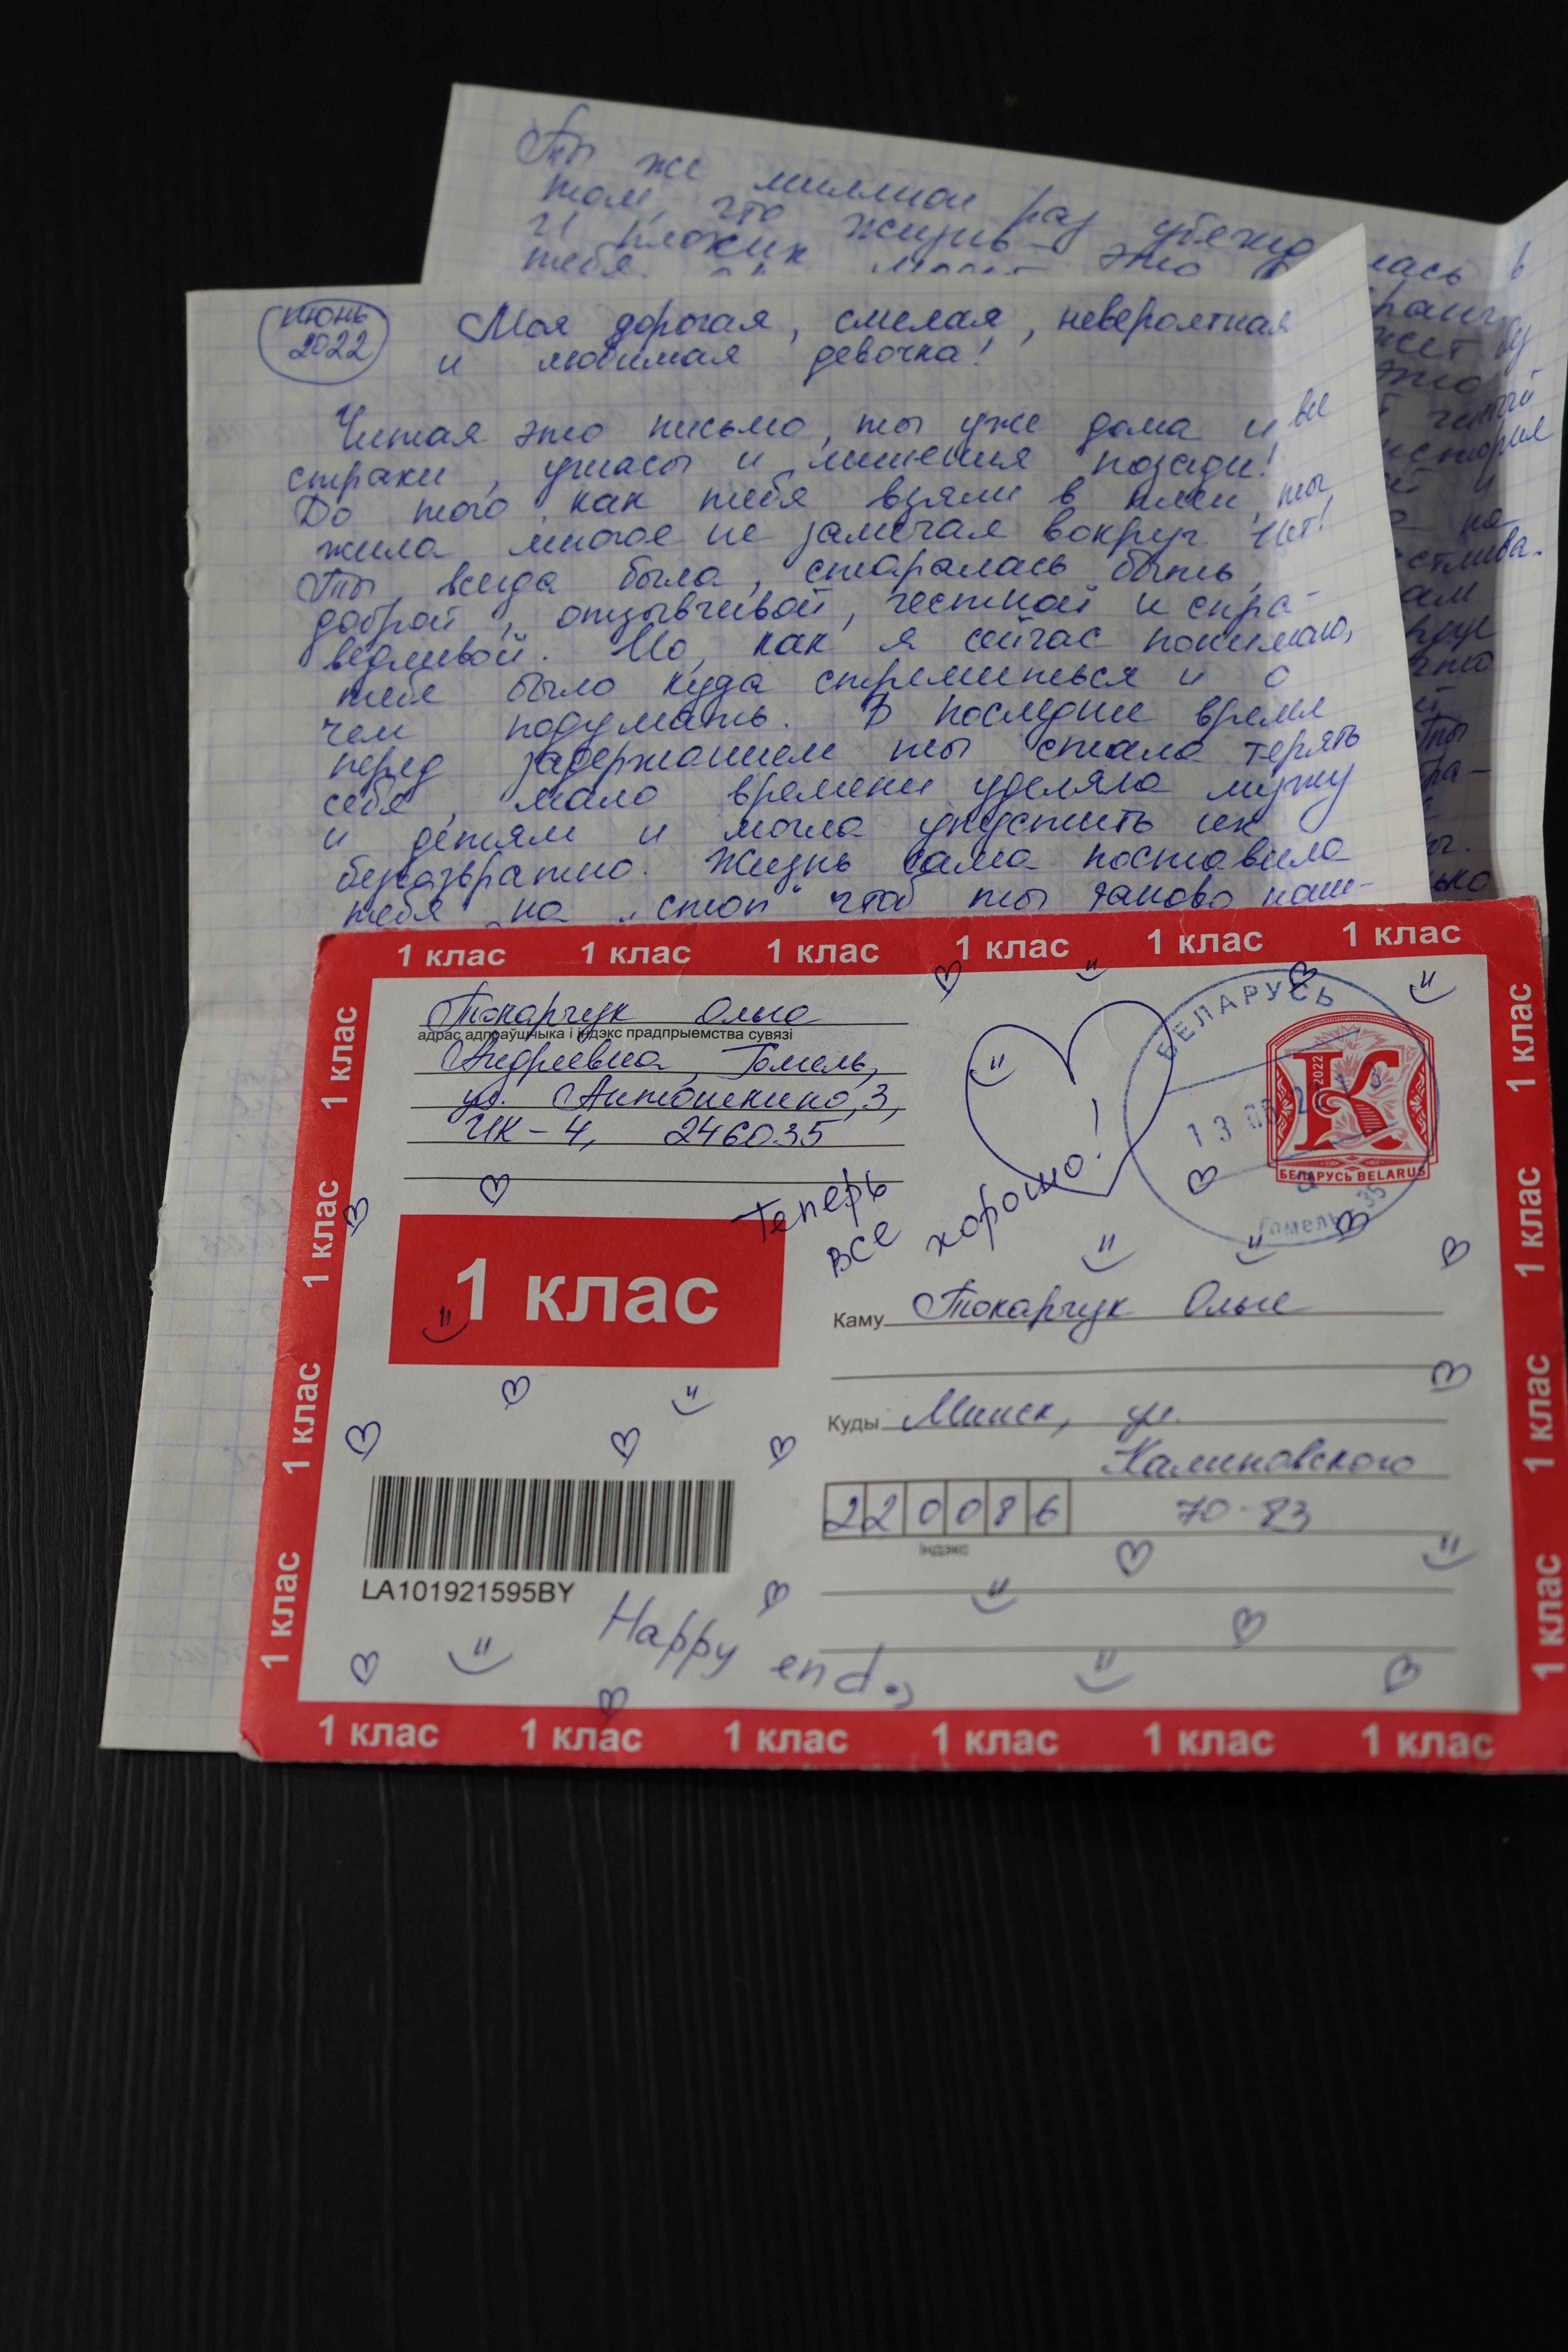 Ты же миллион раз убежд
том, что жизнь – это
тебя
июнь
2022
Моя дорогая, смелая, невероятная
и любимая девочка!
Читая это письмо, ты уже дома и все
страхи, ужасы и лишения позади!
До того как тебя взяли в плен, ты
жила многое не замечая вокруг. Нет!
Ты всегда была, старалась быть,
доброй, отзывчивой, честной и спра-
ведливой. Но, как я сейчас понимаю,
тебе было куда стремиться и о
чем подумать. В последнее время
перед задержанием ты стала терять
себя, мало времени уделяла мужу
и детям и могла упустить их
безвозвратно. Жизнь сама поставила
тебя на „стоп" чтоб ты заново
1 клас 1 клас 1 клас 1 клас 1 клас 1 клас
Токарчук Ольга
адрас адпраўшчыка і індэкс прадпрыемства сувязі
Андреевна, Гомель,
ул. Антошкина, 3,
ИК-4, 246035
БЕЛАРУСЬ
13
Гомель 35
2022
К
БЕЛАРУСЬ BELARUS
Теперь
все хорошо!
1 клас
Каму Токарчук Ольге
Куды Минск, ул.
Калиновского
220086 70-83
індэкс
LA101921595BY
Happy end
1 клас
1 клас
1 клас
1 клас
1 клас
1 клас
1 клас
1 клас
1 клас 1 клас 1 клас 1 клас 1 клас 1 клас